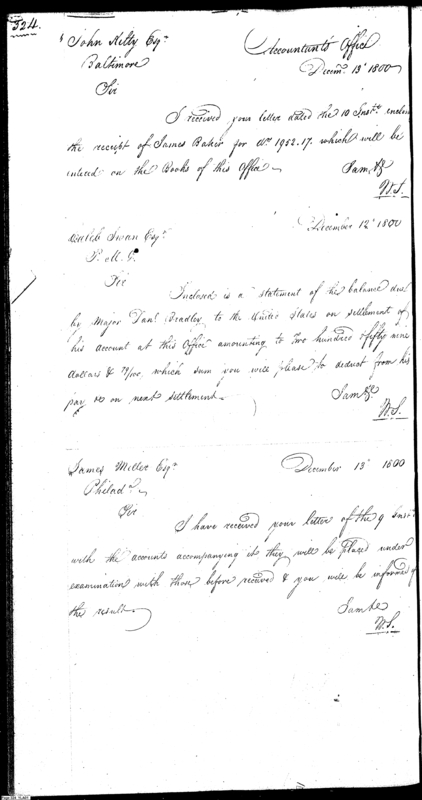 324.
John Kilty Esqr
Accountants Office
Baltimore
Decemr 13th 1800
Sir
I received your letter dated the 10 Inste enclosg
the receipt of James Baker for Drs 1952.17. which will be
entered on the Books of this Office
I am &c
W.S.
December 12th 1800
Caleb Swan Esqr
P. M. G.
Sir
Inclosed is a statement of the balance due
by Major Danl Bradley to the United States on settlement of
his account at this Office amounting to two hundred & fifty nine
dollars & /100, which sum you will please to deduct from his
pay &c on next settlement.
I am &c
W.S.
James Miller Esqr
December 13th 1800
Philada
Sir
I have received your letter of the 9 Inst
with the accounts accompanying it they will be placed under
examination with those before received & you will be informed of
the result.
I am &c
W.S.